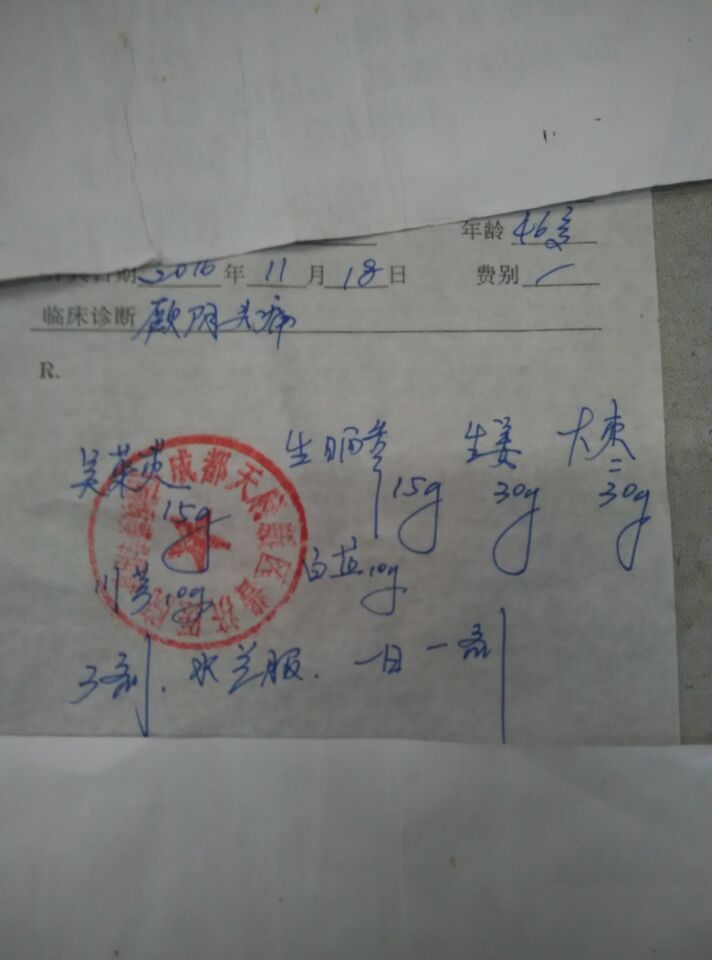 年龄 46岁
日期 2016 年 11 月 18 日 费别 /
临床诊断 厥阴头痛
R.
吴茱萸 15g 生晒参 15g 生姜 30g 大枣 30g
川芎 10g 白芷 10g
3剂. 水煎服. 一日一剂
成都天府新区